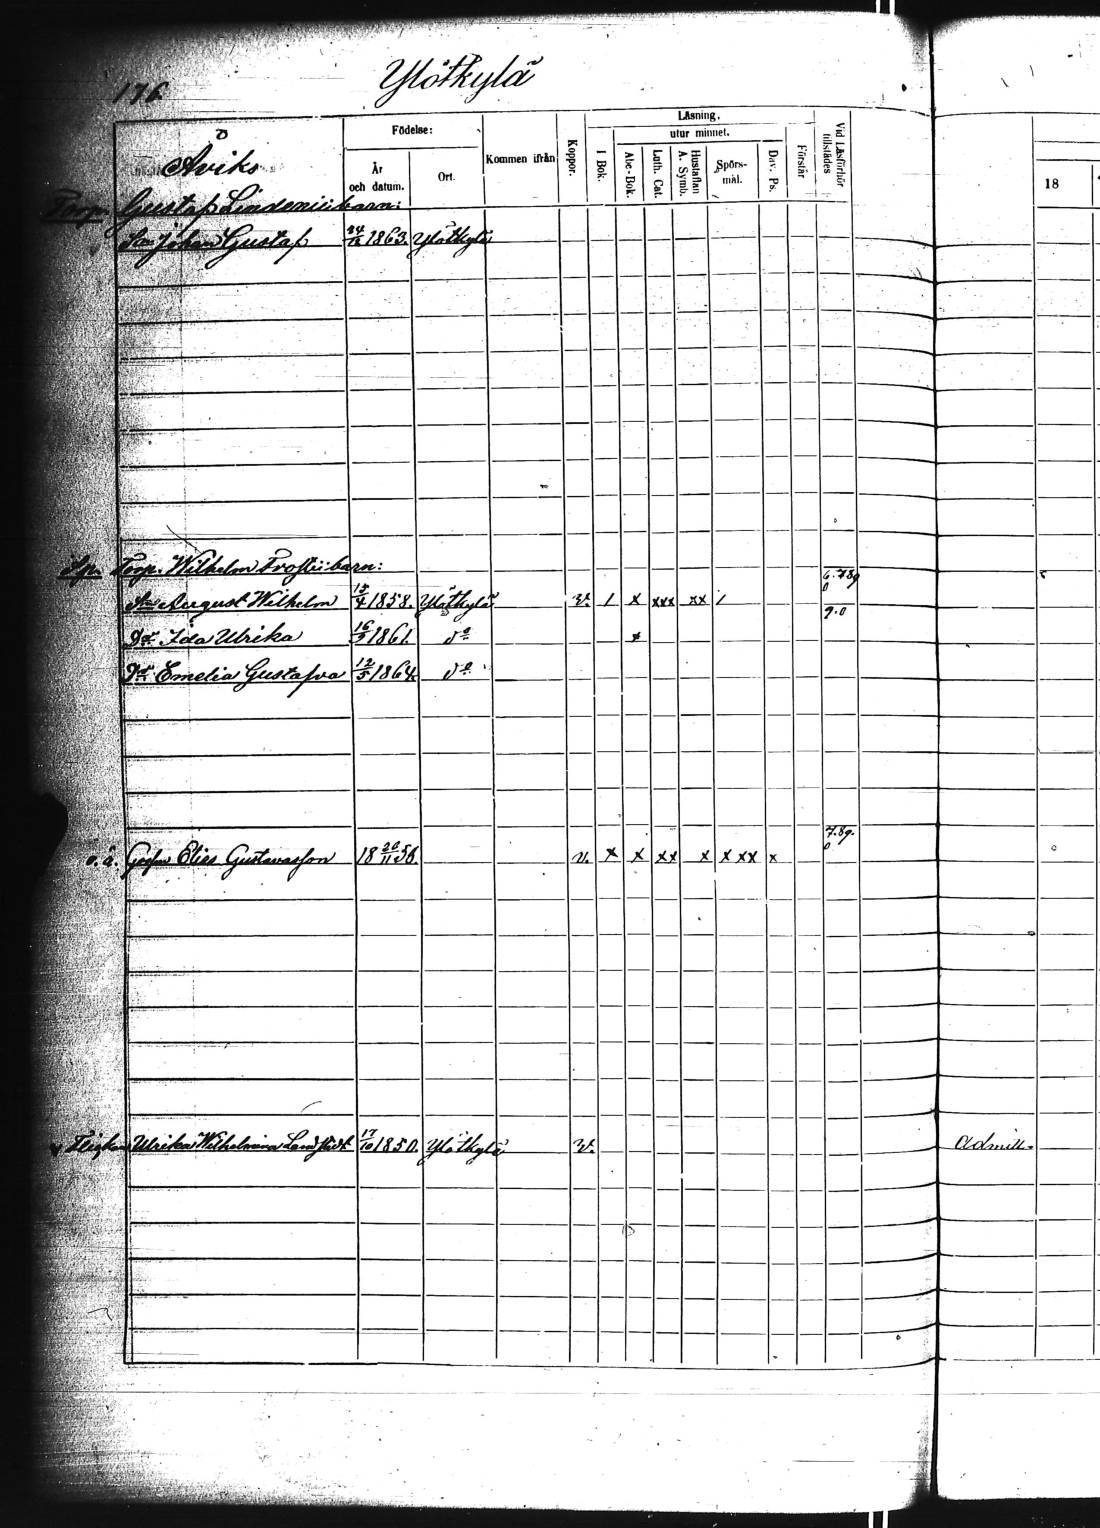 176
Ylötkylä
Födelse:
År och datum.
Ort.
Kommen ifrån
Koppor.
Läsning,
I Bok.
utur minnet.
Abc-Bok.
Luth. Cat.
Hustaflan A. Symb.
Spörsmål.
Dav. Ps.
Förstår
Vid Läsförhör tillstädes
18
Aviks
Torp. Gustaf Lindenii barn:
Son Johan Gustaf 24/12 1863. Ylötkylä
Torp. Wilhelm Frosti barn: 6.789
Son August Wilhelm 15/4 1858. Ylötkylä v. / x xxx xx / 9.0
Dr Ida Ulrika 16/9 1861. do x
Dr Emelia Gustafva 12/5 1864. do
7.89.
o.ä. Elies Gustavasson 18 20/11 56. v. x x xx x x xx x
Flickan Ulrika Wilhelmina 17/10 1850. Ylötkylä v. Admitt.